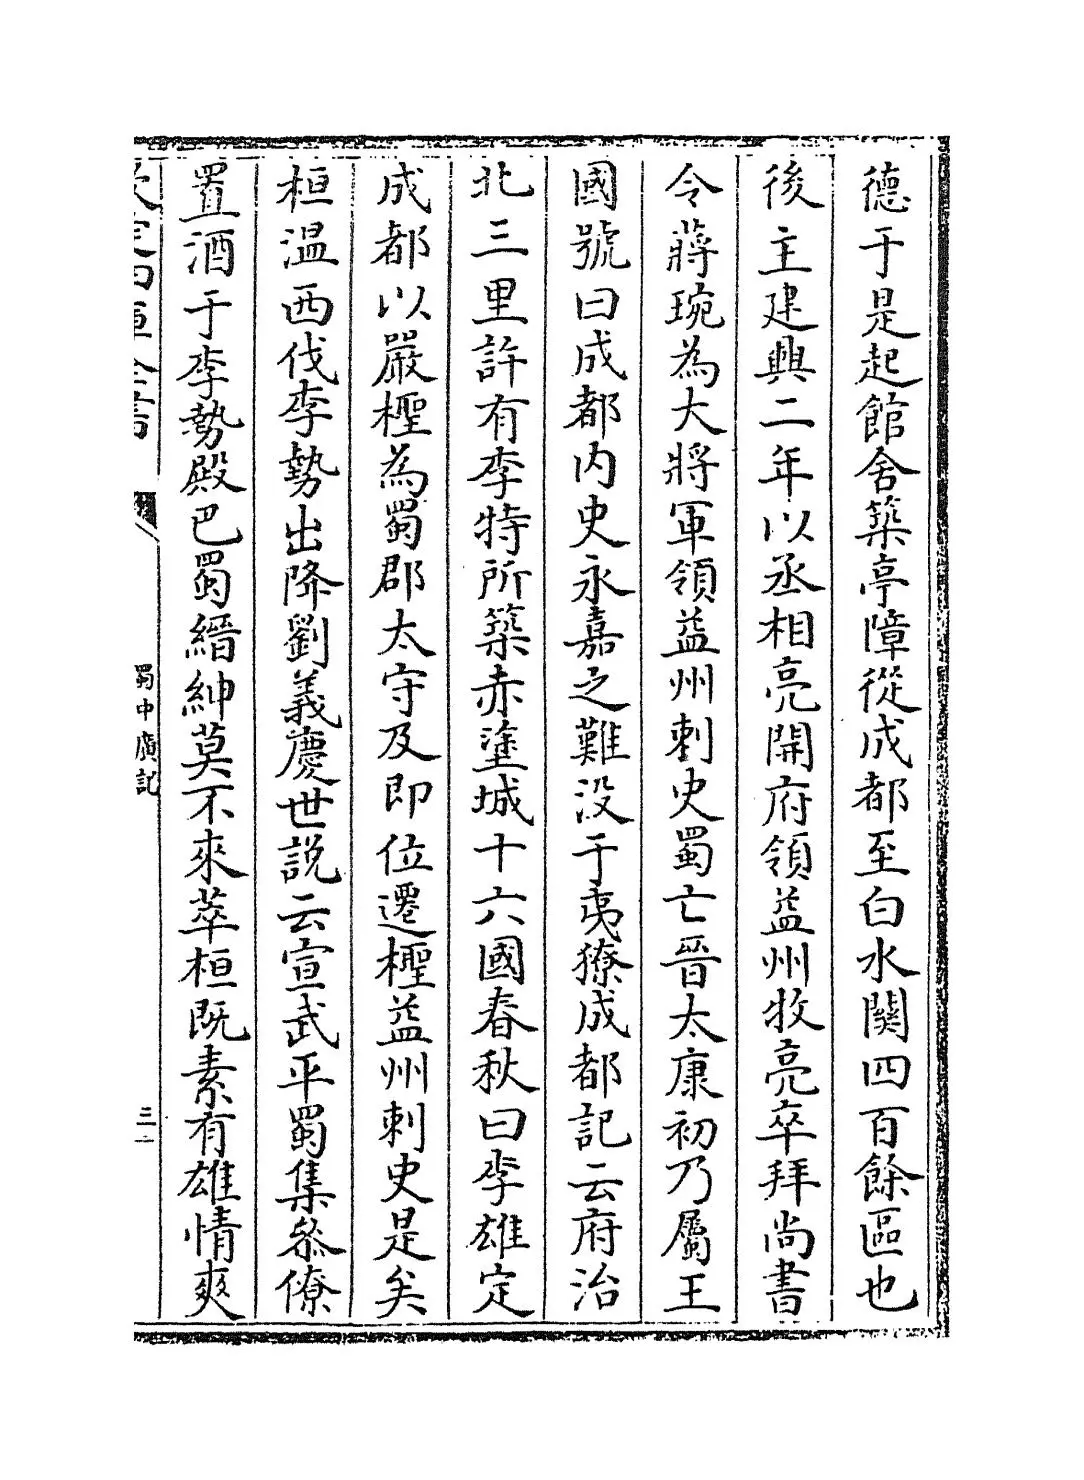 德于是起館舍築亭障從成都至白水關四百餘區也
後主建興二年以丞相亮開府領益州牧亮卒拜尚書
令蔣琬為大將軍領益州刺史蜀亡晉太康初乃屬王
國號曰成都內史永嘉之難没于夷獠成都記云府治
北三里許有李特所築赤塗城十六國春秋曰李雄定
成都以嚴檉為蜀郡太守及即位遷檉益州刺史是矣
桓温西伐李勢出降劉義慶世説云宣武平蜀集叅僚
置酒于李勢殿巴蜀縉紳莫不來萃桓既素有雄情爽
欽定四庫全書
蜀中廣記
三